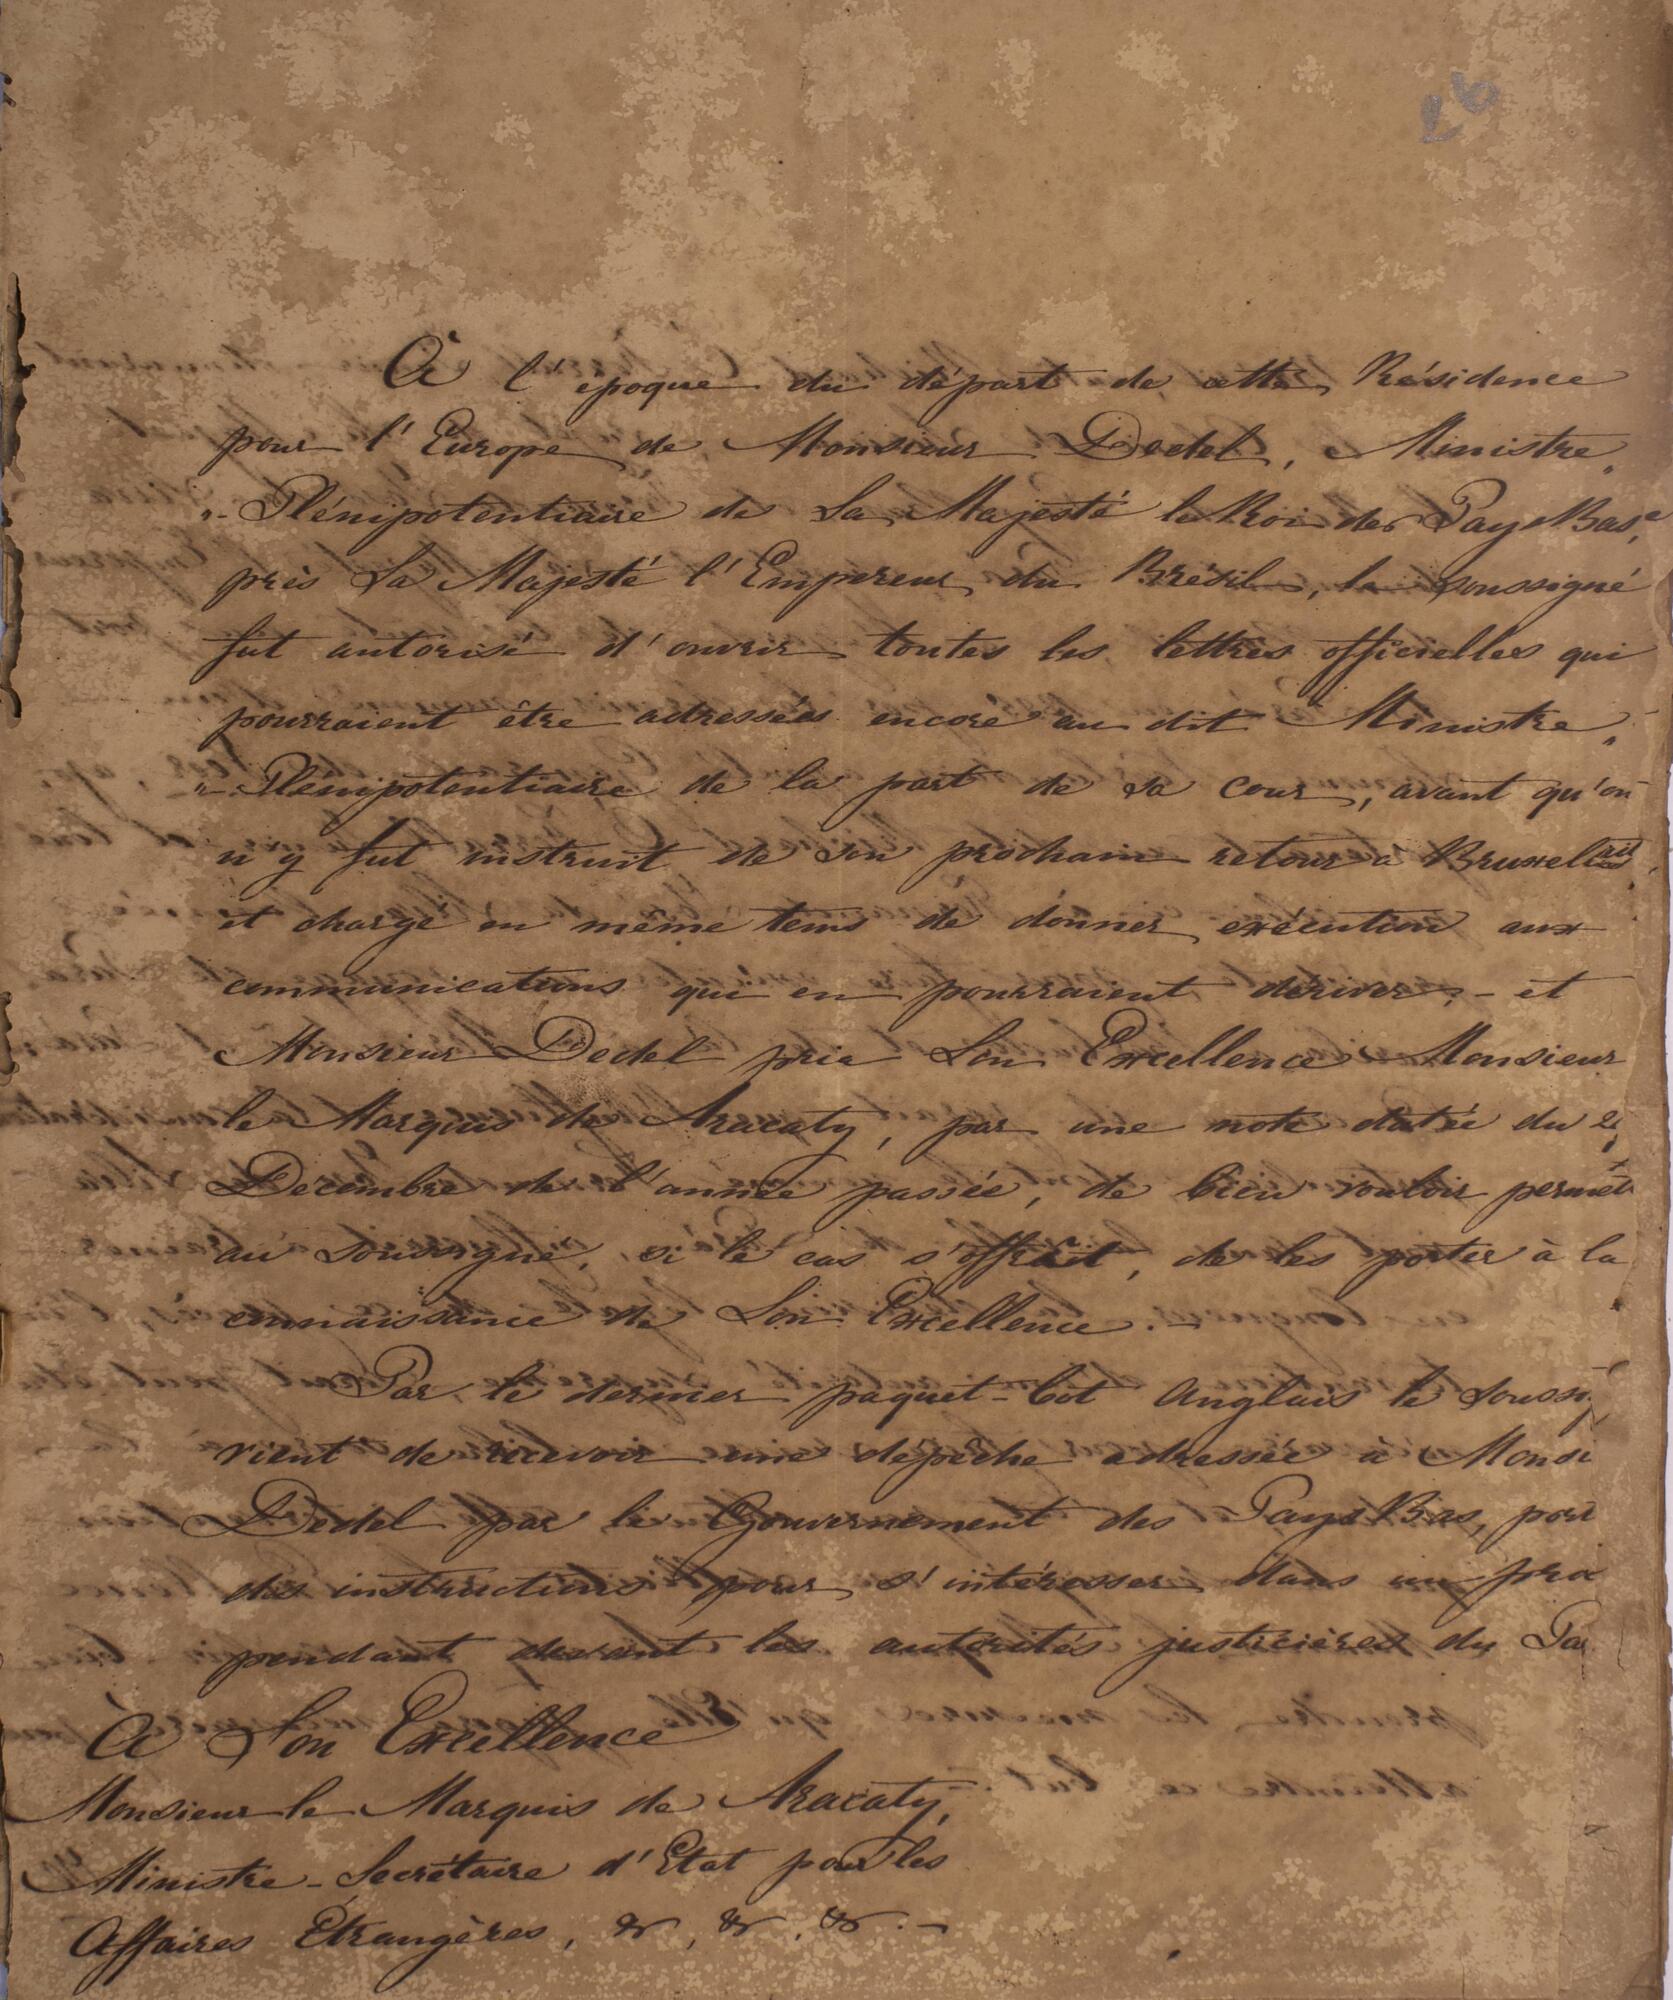 26
À l'époque du départ de cette Résidence
pour l'Europe de Monsieur Dedel, Ministre
Plénipotentiaire de Sa Majesté le Roi des Pays Bas,
près Sa Majesté l'Empereur du Brésil, le soussigné
fut autorisé d'ouvrir toutes les lettres officielles qui
pourraient être adressées encore au dit Ministre
Plénipotentiaire de la part de sa cour, avant qu'on
n'y fut instruit de son prochain retour à Bruxelles
et chargé en même tems de donner exécution aux
communications qui en pourraient dériver; - et
Monsieur Dedel pria Son Excellence Monsieur
le Marquis de Aracaty, par une note datée du
Décembre de l'année passée, de bien vouloir permet
au Soussigné, si le cas s'offrait, de les porter à la
connaissance de Son Excellence. -
Par le dernier paquet-bot Anglais le Soussi
vient de recevoir une dépêche adressée à Monsi
Dedel par le Gouvernement des Pays Bas, por
des instructions pour s'intéresser dans un pro
pendant devant les autorités justicières du Pa
À Son Excellence
Monsieur le Marquis de Aracaty,
Ministre - Secrétaire d'Etat pour les
Affaires Étrangères, &, &, &. -